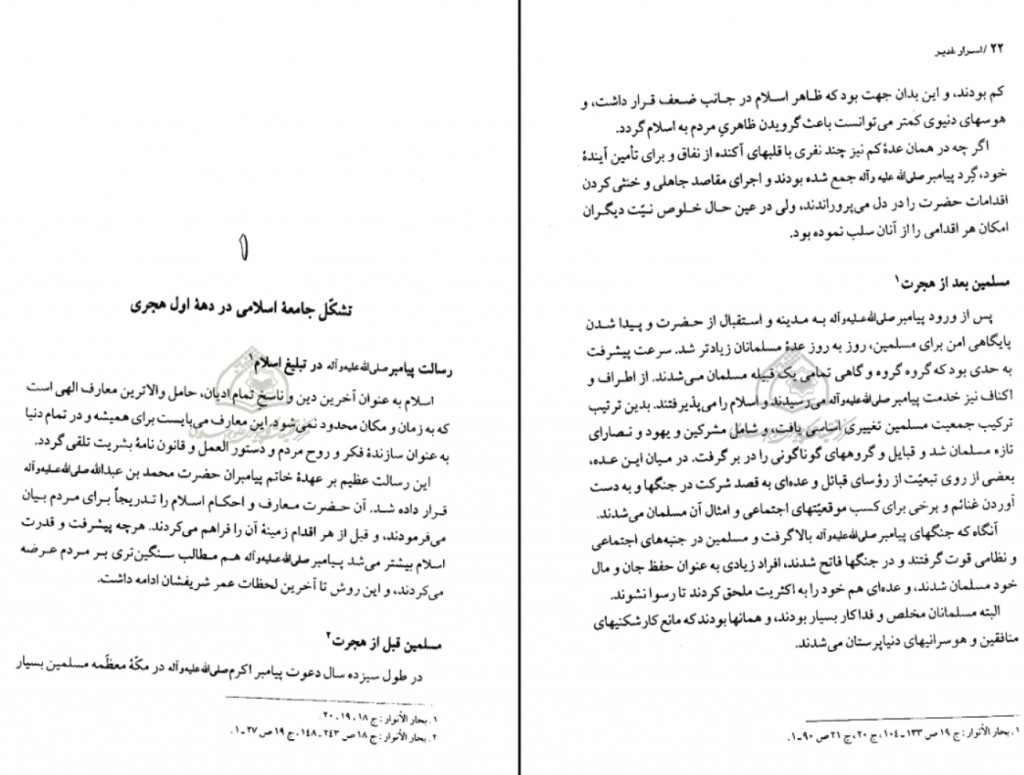 ۱
تشکّل جامعهٔ اسلامی در دههٔ اول هجری
رسالت پیامبر صلی‌الله علیه وآله در تبلیغ اسلام۱
اسلام به عنوان آخرین دین و ناسخ تمام ادیان، حامل والاترین معارف الهی است
که به زمان و مکان محدود نمی‌شود. این معارف می‌بایست برای همیشه و در تمام دنیا
به عنوان سازندهٔ فکر و روح مردم و دستور العمل و قانون نامهٔ بشریت تلقی گردد.
این رسالت عظیم بر عهدهٔ خاتم پیامبران حضرت محمد بن عبدالله صلی‌الله علیه وآله
قرار داده شد. آن حضرت معارف و احکام اسلام را تدریجاً برای مردم بیان
می‌فرمودند، و قبل از هر اقدام زمینهٔ آن را فراهم می‌کردند. هرچه پیشرفت و قدرت
اسلام بیشتر می‌شد پیامبر صلی‌الله علیه وآله هم مطالب سنگین‌تری بر مردم عرضه
می‌کردند، و این روش تا آخرین لحظات عمر شریفشان ادامه داشت.
مسلمین قبل از هجرت۲
در طول سیزده سال دعوت پیامبر اکرم صلی‌الله علیه وآله در مکّهٔ معظّمه مسلمین بسیار
۱. بحار الأنوار: ج ۱۸، ۱۹، ۲۰.
۲. بحار الأنوار: ج ۱۸ ص ۲۴۳ـ۱۴۸، ج ۱۹ ص ۲۷ـ۱.
۲۲ / اسرار غدیر
کم بودند، و این بدان جهت بود که ظاهر اسلام در جانب ضعف قرار داشت، و
هوسهای دنیوی کمتر می‌توانست باعث گرویدن ظاهریِ مردم به اسلام گردد.
اگر چه در همان عدهٔ کم نیز چند نفری با قلبهای آکنده از نفاق و برای تأمین آیندهٔ
خود، گِرد پیامبر صلی‌الله علیه وآله جمع شده بودند و اجرای مقاصد جاهلی و خنثی کردن
اقدامات حضرت را در دل می‌پروراندند، ولی در عین حال خلوص نیّت دیگران
امکان هر اقدامی را از آنان سلب نموده بود.
مسلمین بعد از هجرت۱
پس از ورود پیامبر صلی‌الله علیه وآله به مدینه و استقبال از حضرت و پیدا شدن
پایگاهی امن برای مسلمین، روز به روز عدهٔ مسلمانان زیادتر شد. سرعت پیشرفت
به حدی بود که گروه گروه و گاهی تمامی یک قبیله مسلمان می‌شدند. از اطراف و
اکناف نیز خدمت پیامبر صلی‌الله علیه وآله می‌رسیدند و اسلام را می‌پذیرفتند. بدین ترتیب
ترکیب جمعیت مسلمین تغییری اساسی یافت، و شامل مشرکین و یهود و نصارای
تازه مسلمان شد و قبایل و گروههای گوناگونی را در بر گرفت. در میان این عده،
بعضی از روی تبعیّت از رؤسای قبائل و عده‌ای به قصد شرکت در جنگها و به دست
آوردن غنائم و برخی برای کسب موقعیّتهای اجتماعی و امثال آن مسلمان می‌شدند.
آنگاه که جنگهای پیامبر صلی‌الله علیه وآله بالا گرفت و مسلمین در جنبه‌های اجتماعی
و نظامی قوت گرفتند و در جنگها فاتح شدند، افراد زیادی به عنوان حفظ جان و مال
خود مسلمان شدند، و عده‌ای هم خود را به اکثریت ملحق کردند تا رسوا نشوند.
البته مسلمانان مخلص و فداکار بسیار بودند، و همانها بودند که مانع کارشکنیهای
منافقین و هوسرانیهای دنیاپرستان می‌شدند.
۱. بحار الأنوار: ج ۱۹ ص ۱۳۳ـ۱۰۴، ج ۲۰، ج ۲۱ ص ۹۰ـ۱.